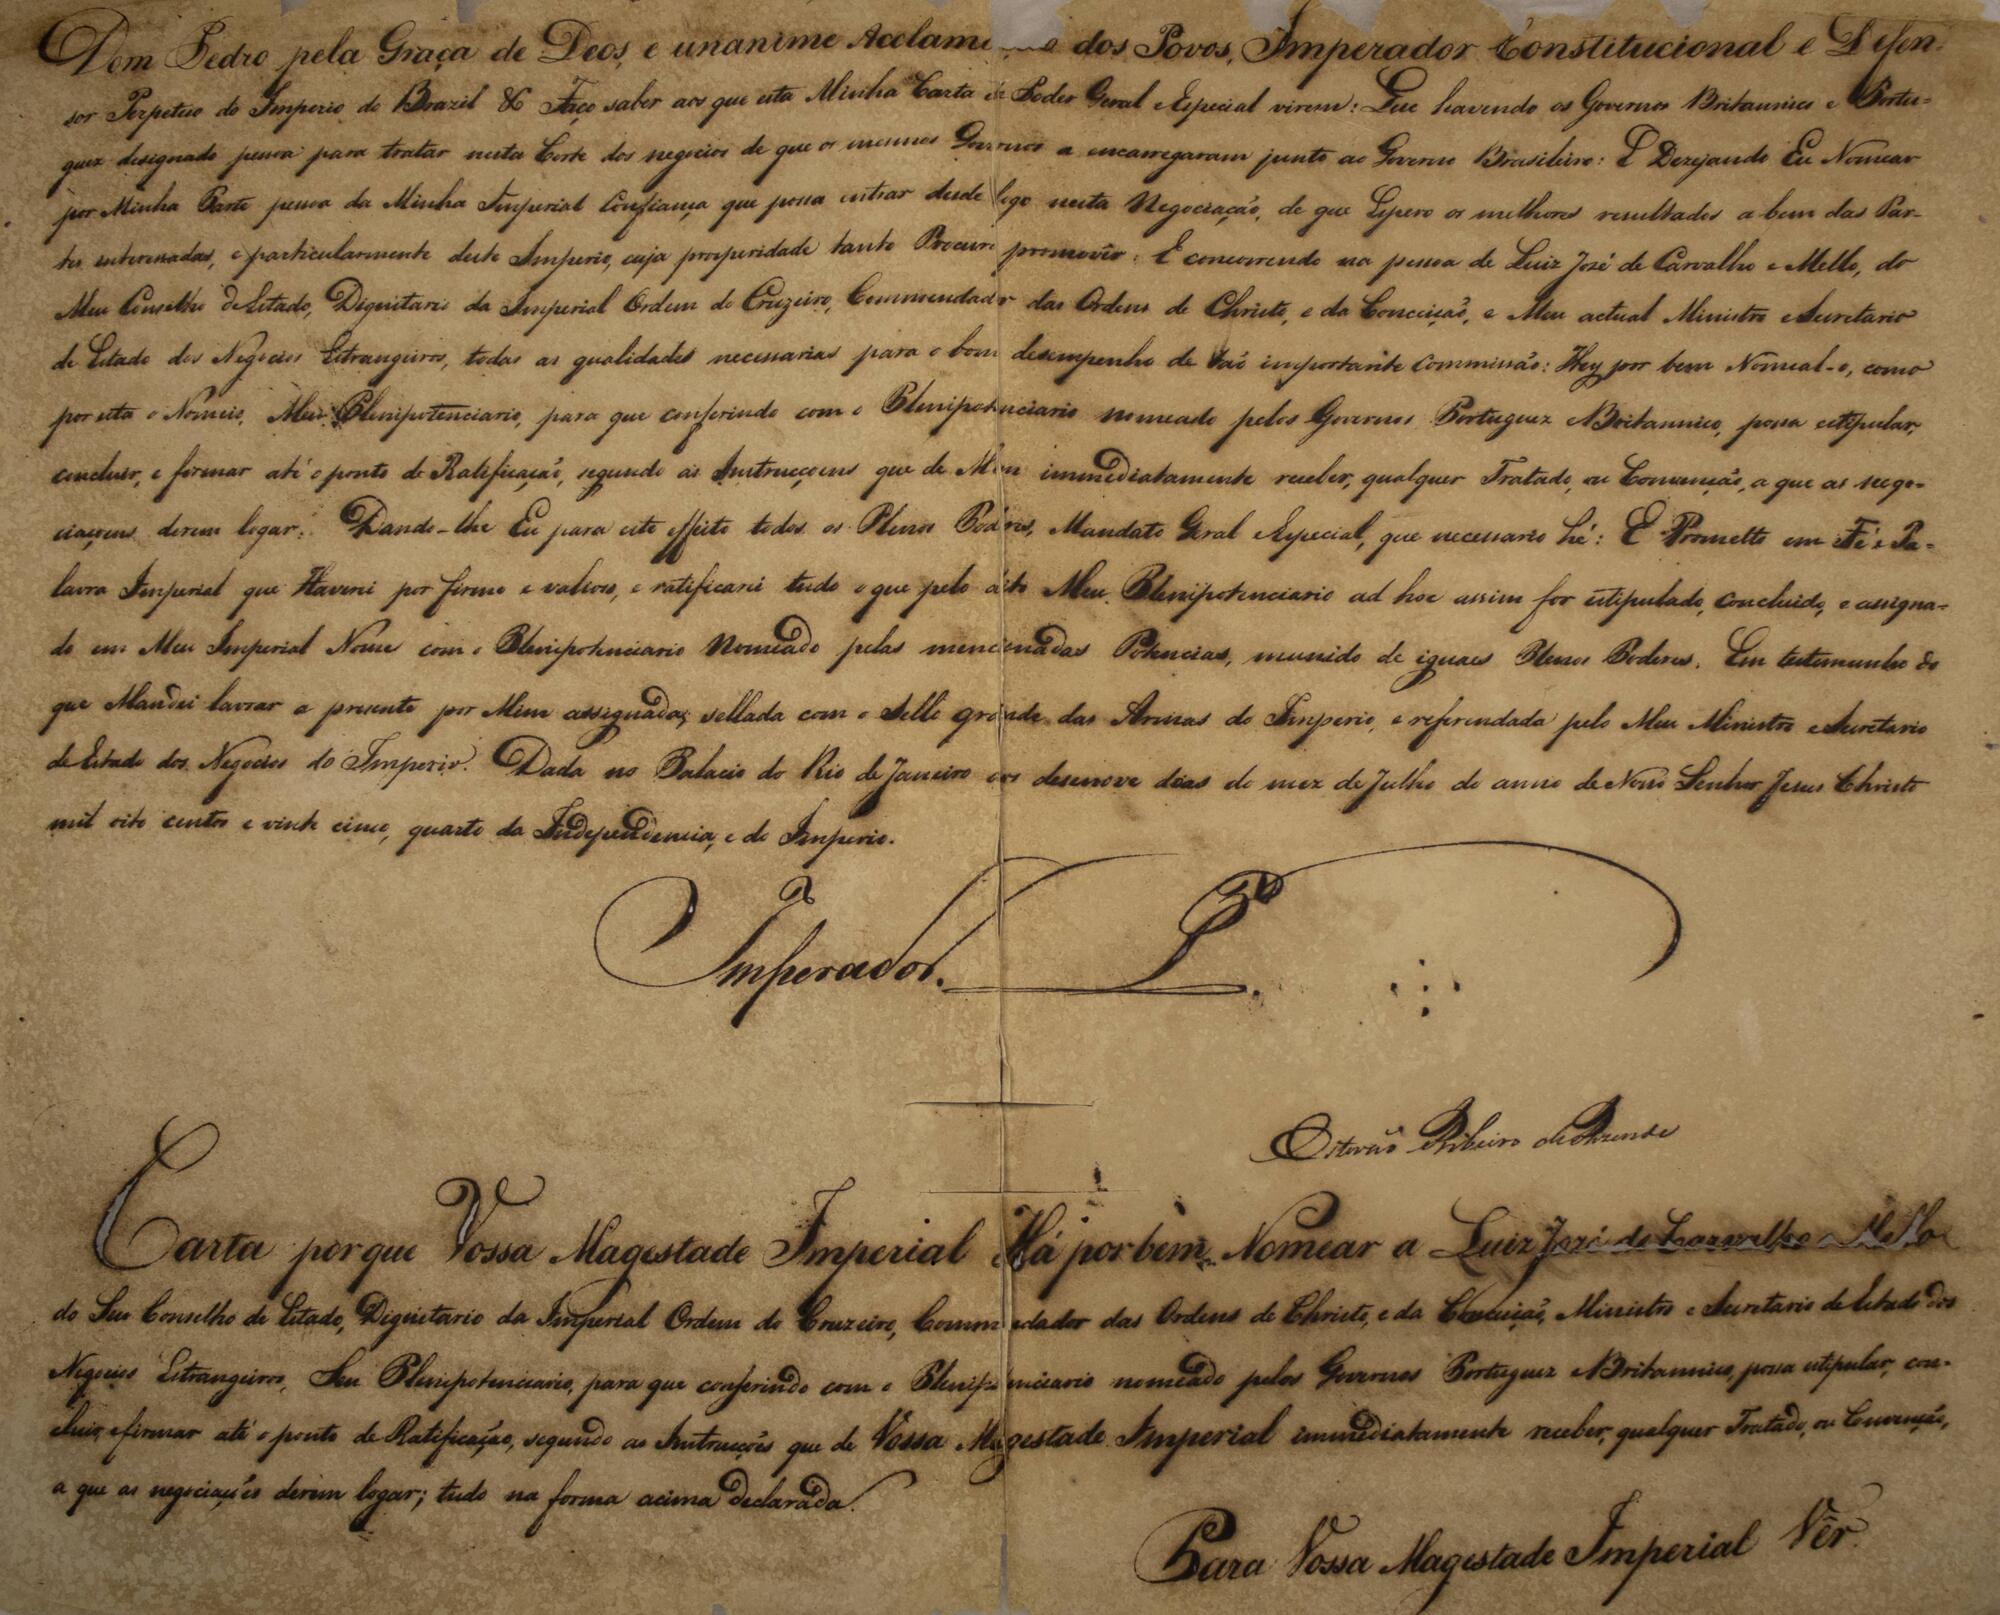 Dom Pedro pela Graça de Deos, e unanime Acclama dos Povos, Imperador Constitucional e Defen-
sor Perpetuo do Imperio do Brazil & Faço saber aos que esta Minha Carta de Poder Geral e Especial virem: Que havendo os Governos Britannico e Portu-
guez designado pessoa para tratar nesta Corte dos negocios de que os mesmos Governos a encarregaram junto ao Governo Brasileiro: E Dezejando Eu Nomear
por Minha Parte pessoa da Minha Imperial Confiança que possa entrar desde logo nesta Negociação, de que Espero os melhores resultados a bem das Par-
tes interessadas, e particularmente deste Imperio, cuja prosperidade tanto Procuro promover: E concorrendo na pessoa de Luiz José de Carvalho e Mello, do
Meu Conselho d'Estado, Dignitario da Imperial Ordem do Cruzeiro, Commendador das Ordens de Christo, e da Conceição, e Meu actual Ministro e Secretario
de Estado dos Negocios Estrangeiros, todas as qualidades necessarias para o bom desempenho de taõ importante Commissão: Hey por bem Nomeal-o, como
por esta o Nomeio, Meu Plenipotenciario, para que conferindo com o Plenipotenciario nomeado pelos Governos Portuguez e Britannico, possa estipular,
concluir, e firmar até o ponto de Ratificação, segundo as Instrucçoens que de Mim immediatamente receber, qualquer Tratado, ou Convenção, a que as nego-
ciaçoens derem logar: Dando-lhe Eu para este effeito todos os Plenos Poderes, Mandato Geral e Especial, que necessario hé: E Prometto em Fé e Pa-
lavra Imperial que Haverei por firme e valioso, e ratificarei tudo o que pelo dito Meu Plenipotenciario ad hoc assim for estipulado, concluido, e assigna-
do em Meu Imperial Nome com o Plenipotenciario Nomeado pelas mencionadas Potencias, munido de iguaes Plenos Poderes. Em testemunho do
que Mandei lavrar a presente por Mim assignada, sellada com o Sello grande das Armas do Imperio, e referendada pelo Meu Ministro e Secretario
de Estado dos Negocios do Imperio. Dada no Palacio do Rio de Janeiro aos desenove dias do mez de Julho do anno de Nosso Senhor Jesus Christo
mil oito centos e vinte cinco, quarto da Independencia, e do Imperio.
Imperador. P.
Estevaõ Ribeiro de Rezende
Carta por que Vossa Magestade Imperial Há por bem Nomear a Luiz José de Carvalho e Mello
do Seu Conselho de Estado, Dignitario da Imperial Ordem do Cruzeiro, Commendador das Ordens de Christo, e da Conceição, Ministro e Secretario de Estado dos
Negocios Estrangeiros, Seu Plenipotenciario, para que conferindo com o Plenipotenciario nomeado pelos Governos Portuguez e Britannico, possa estipular, con-
cluir, e firmar até o ponto de Ratificação, segundo as Instrucções que de Vossa Magestade Imperial immediatamente receber, qualquer Tratado, ou Convenção,
a que as negociações derem logar; tudo na forma acima declarada.
Para Vossa Magestade Imperial Vêr.